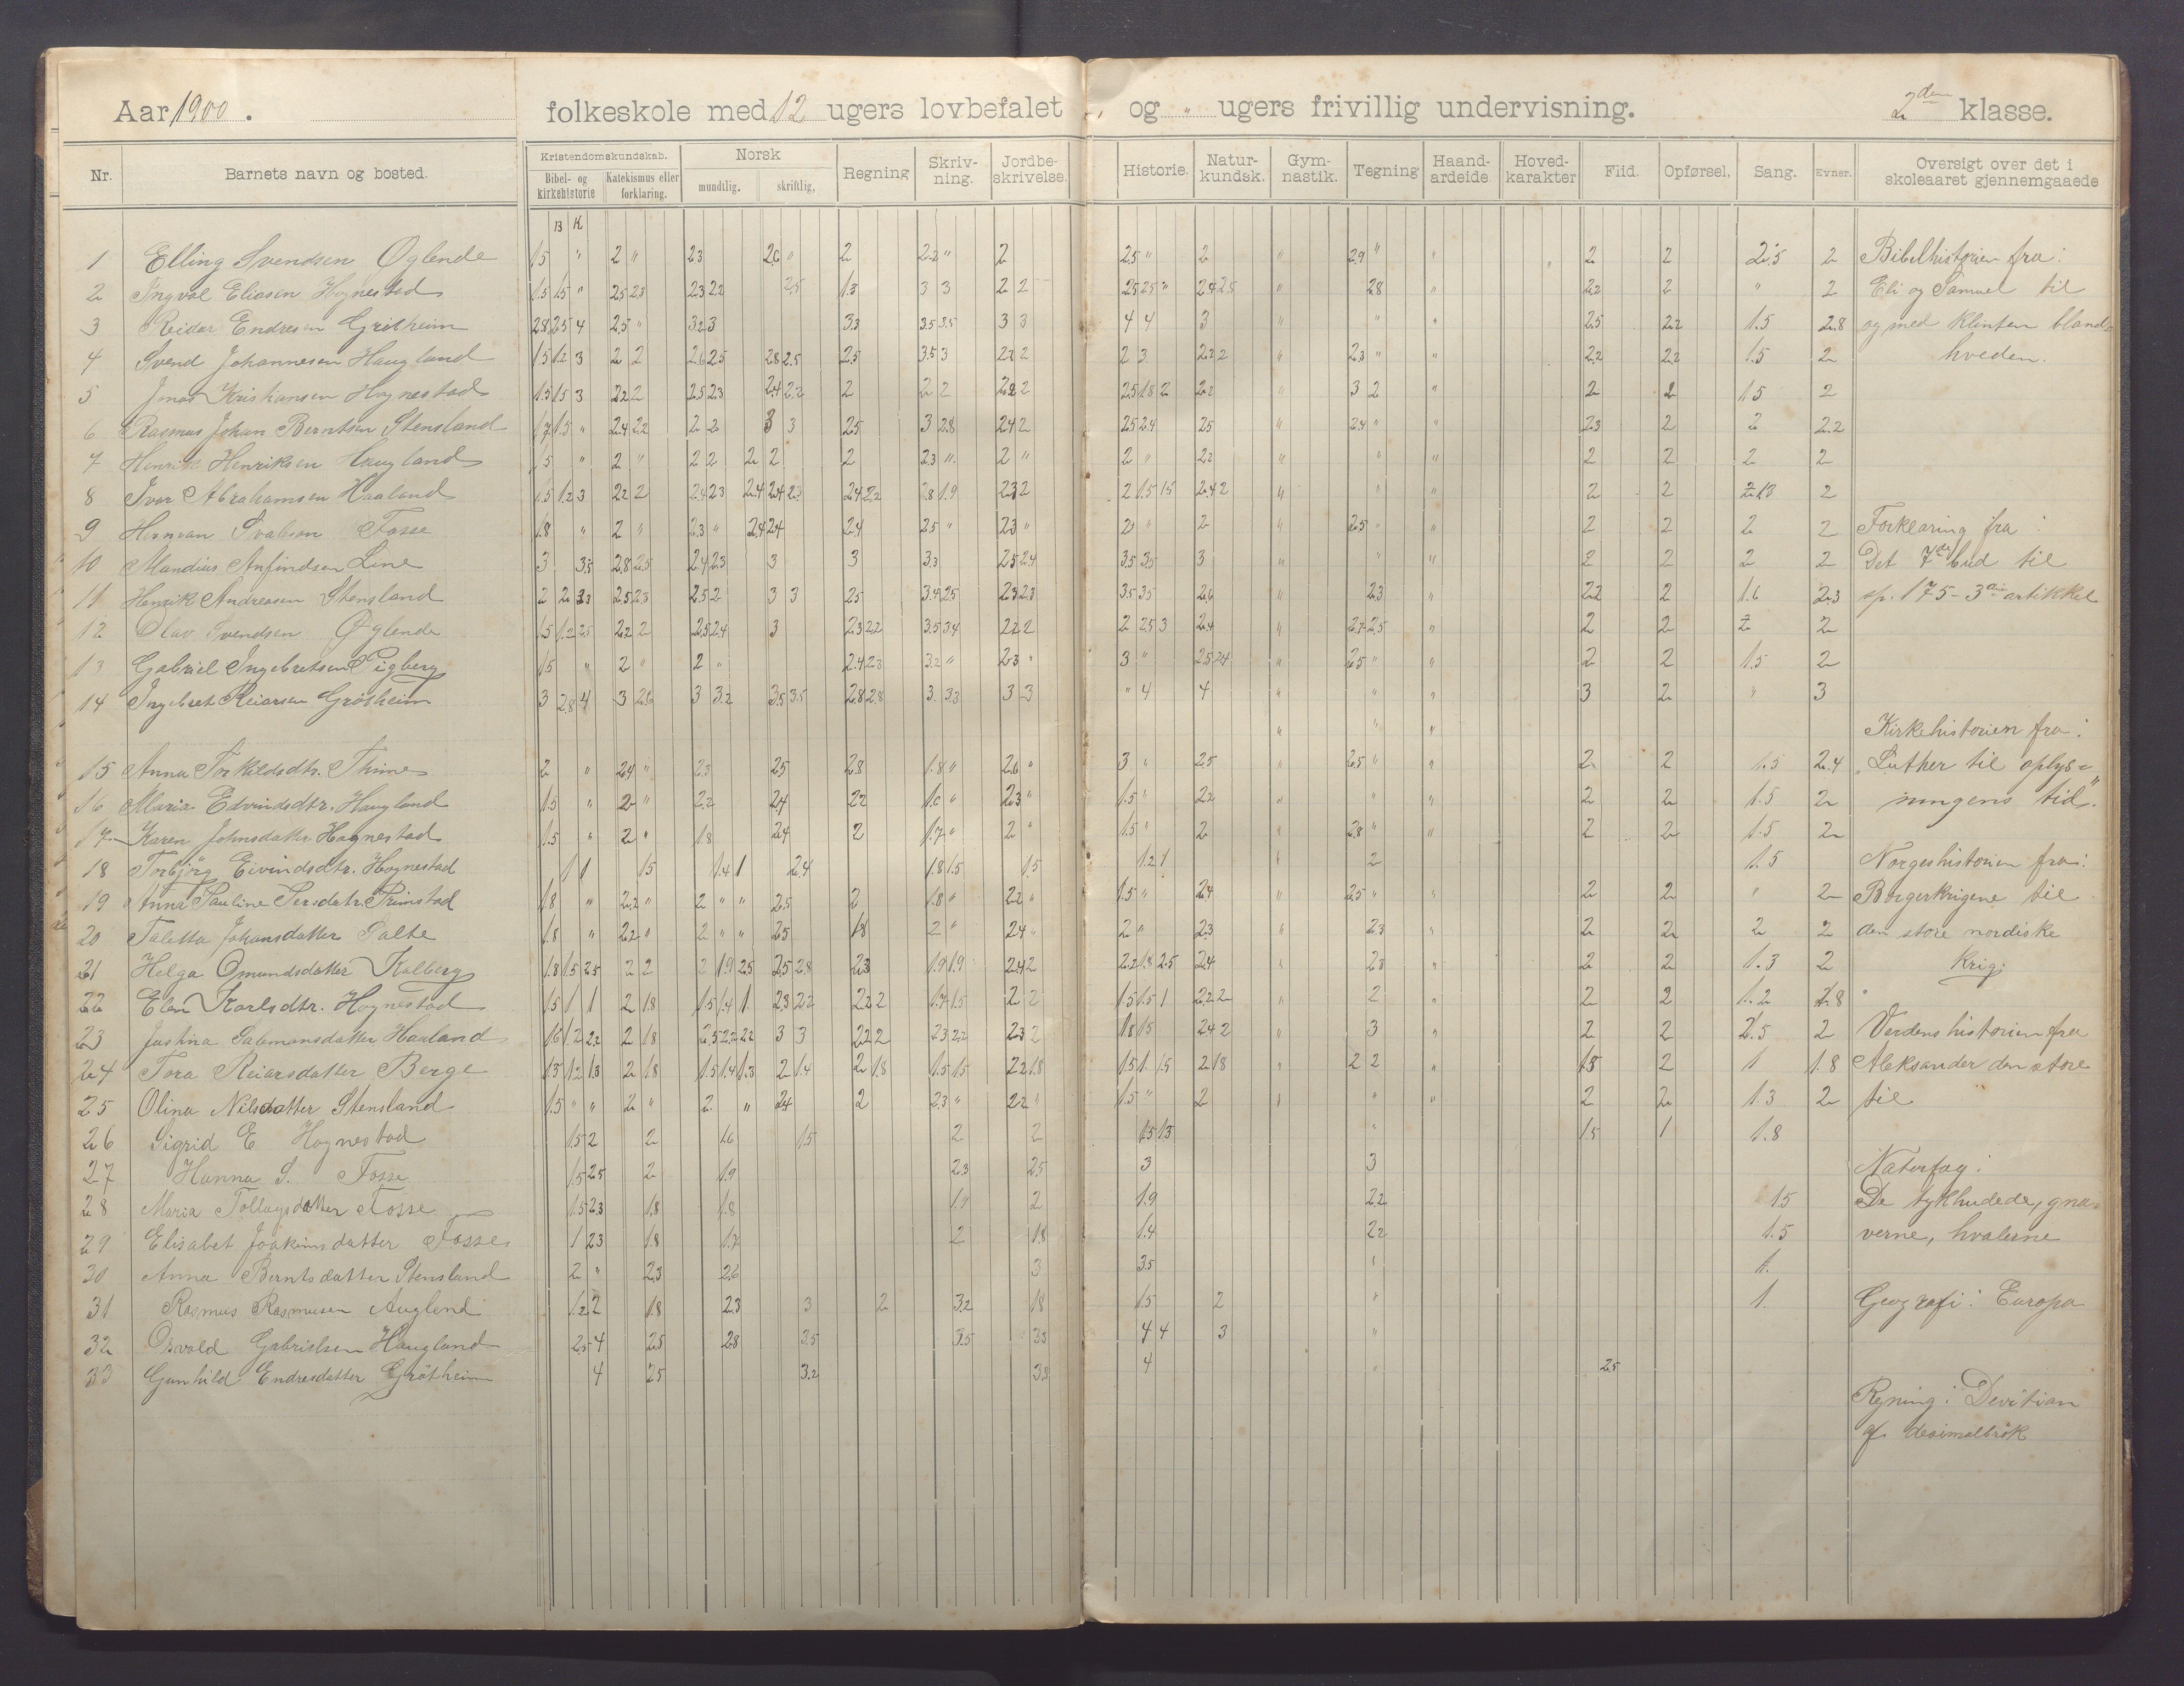 Aar 1900. folkeskole med 12 ugers lovbefalet, og " ugers frivillig undervisning. 2den klasse.
Nr. Barnets navn og bosted. Kristendomskundskab. Bibel- og kirkehistorie Katekismus eller forklaring. Norsk mundtlig. skriftlig, Regning Skriv-ning. Jordbe-skrivelse. Historie. Natur-kundsk. Gym-nastik. Tegning Haand-arbeide Hoved-karakter Flid. Opførsel. Sang. Evner. Oversigt over det i skoleaaret gjennemgaaede
B K
1 Elling Svendsen Øglende 1.5 " 2 " 2.3 2.6 " 2 2.2 " 2 2.5 " 2 " 2.9 " " 2 2 2.5 2 Bibelhistorien fra:
2 Ingval Eliasen Hognestad 1.5 1.5 " 2.5 2.3 2.3 2.2 2.5 1.3 3 3 2 2 2.5 2.5 " 2.4 2.5 " 2.8 " 2.2 2 " 2 Eli og Samuel til
3 Reidar Endresen 2.8 2.5 4 2.5 " 3.2 3 3.3 3.5 3.5 3 3 4 4 3 " " 2.5 2.2 1.5 2.8 og med Klinten bland
4 Svend Johannesen Haugland 1.5 1.2 3 2 2 2.6 2.5 2.8 2.5 2.5 3.5 3 2.2 2 2 3 2.2 2 " 2.3 " " 2.2 2.2 1.5 2 hveden.
5 Jonas Kristiansen Hognestad 1.5 1.5 3 2.2 2 2.5 2.3 2.4 2.2 2 2 2 2.2 2 2.5 1.8 2 2.2 " 3 2 " 2 2 1.5 2
6 Rasmus Johan Berntsen Stensland 1.7 1.5 " 2.4 2.2 2 2 3 3 2.5 3 2.8 2.4 2 2.5 2.4 2.5 " 2.4 " " 2.3 2 2 2.2
7 Henrik Henriksen Haugland 1.5 " 2 " 2 2 2 2 2 2.3 " 2 " 2 " 2.2 " " " 2 2 2 2
8 Ivar Abrahamsen Haaland 1.5 1.2 3 2.2 2 2.4 2.3 2.4 2.4 2.3 2.4 2.2 2.8 1.9 2.3 2 2 1.5 1.5 2.4 2 " " " 2 2 2
9 Herman Fosse 1.8 " 2 " 2.3 " 2.4 2.4 2.4 2.5 " 2.3 " 2 " 2 " 2.5 " " 2 2 2 2 Forklaring fra:
10 Mandius Anfindsen Line 3 3.5 2.8 2.5 2.4 2.3 3 3 3.3 2.5 2.4 3.5 3.5 3 " " " 2 2 2 2 Det 7de bud til
11 Henrik Andreasen Stensland 2 2 2.3 2.5 2.3 2.5 2 3 3 2.5 3.4 2.5 2.3 2.3 3.5 3.5 2.6 " 2.3 " 2.2 2 1.6 2.3 sp. 175 - 3die artikkel
12 Olav Svendsen Øglende 1.5 1.2 2.5 2.2 2 2.5 2.4 3 2.3 2.2 3.5 3.4 2.2 2 2 2.5 3 2.4 " 2.7 2.5 " 2 2 2 2
13 Gabriel Ingebretsen Sigberg 1.5 " 2 " 2 " 2.4 2.3 3.2 " 2.3 " 3 " 2.5 2.4 " 2.5 " " 2 2 1.5 2
14 Ingebret Reiarsen Grøtheim 3 2.8 4 3 2.6 3 3.2 3.5 3.5 2.8 2.8 3 3.3 3 3 " 4 4 " " " 3 2 " 3
" " " Kirkehistorien fra:
15 Anna Torkildsdtr. Thime 2 " 2.4 " 2.5 2.5 2.8 1.8 " 2.6 " 3 " 2.5 " 2.5 " " 2 2 1.5 2.4 "Luther til oplys-
16 Maria Edvindsdtr. Haugland 1.5 " 2 " 2.2 2.4 2.2 1.6 " 2.3 " 1.5 " 2.2 " " " 2 2 1.5 2 ningens tid".
17 Karen Johnsdatter Hognestad 1.5 " 2 " 1.8 2.4 2 1.7 " 2 " 1.5 " 2 " 2.8 " " 2 2 1.5 2
18 Torbjörg Eivindsdtr. Hognestad 1 1 1.5 1.4 1 2.4 1.8 1.5 1.5 1.2 1 " 2 1.5 Norgeshistorien fra:
19 Anna Pauline Persdatr. Primstad 1.8 " 2.2 " 2 " " 2.5 2 1.8 " 2.2 " 1.5 " 2.4 " 2.5 " " 2 2 " 2 Borgerkrigene til
20 Taletta Johansdatter 1.8 " 2.2 " 2 " " 2.5 1.8 2 " 2.4 " 2 " 2.3 " 2.3 " 2 2 2 2 den store nordiske
21 Helga Omundsdatter Kalberg 1.8 1.5 2.5 2 2 2 1.9 2.5 2.5 2.8 2.3 1.9 1.9 2.4 2 2.2 1.8 2.5 2.4 " 2.3 " 2 2 1.3 2 krig.
22 Elen Karlsdtr. Hognestad 1.5 1 1 2 1.8 1.5 1.4 1 2.3 2.2 2.2 2 1.7 1.5 2 2 1.5 1.5 1 2.2 2 " 2 " 2 2 1.2 1.8
23 Justina Salamonsdatter Haaland 1.6 1.2 2.2 2 1.8 2.5 2.2 2.2 3 3 2.2 2 2.3 2.2 2.3 2 1.8 1.5 2.4 2 " 3 " 2 2 2.5 2 Verdenshistorien fra
24 Tora Reiarsdatter Berge 1.3 1.2 1.3 2 1.8 1.5 1.4 1.3 2 1.4 2 1.8 1.5 1.5 2.2 1.8 1.5 1. 1.5 2 1.8 " 2 2 " 1.8 2 1 1.8 Aleksander den store
25 Olina Nilsdatter Stensland 1.5 " " 2 " 2 " 2.4 2 2.3 " 2.2 " 1.5 " 2 " " " 2 2 1.3 2 til
26 Sigrid E Hognestad 1.5 2 2 1.6 1.5 2 2 1.5 1.3 " 1.5 1 1.8
27 Hanna S. Fosse 1.5 2.5 2 1.9 2.3 2.5 3 3 Naturfag:
28 Maria Tollagsdatter Fosse 1.5 2.3 1.8 1.8 1.9 2 1.9 2.2 1.5 De tykhudede, gna-
29 Elisabet Joakimsdatter Fosse 1 2.3 1.8 1.7 2 1.8 1.4 2.2 1.5 verne, hvalerne
30 Anna Berntsdatter Stensland 2 " 2.3 2.6 3 3.5 " 1.
31 Rasmus Rasmusen Auglend 1.2 2 1.8 2.3 3 2 3.2 1.8 1.5 2 " 1. Geografi: Europa
32 Osvald Gabrielsen Haugland 2.5 4 2.5 2.8 3.5 3.5 3.3 4 4 3 "
33 Gunhild Endresdatter Grøtheim 4 2.5 3.2 3.3 4 " 2.5
Regning: Devitian
af desimalbrøk